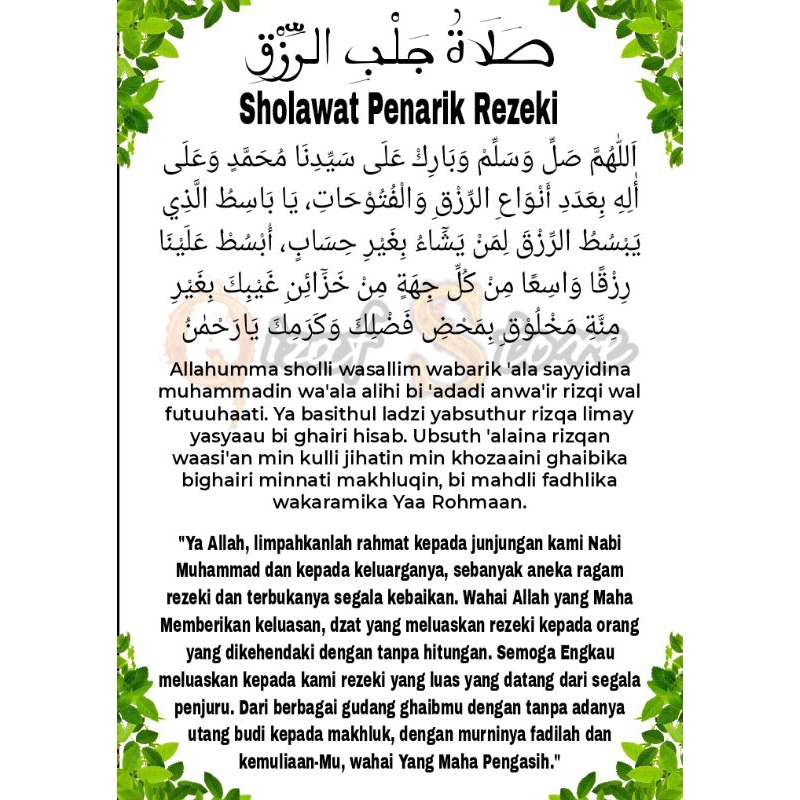 صَلَاةُ جَلْبِ الرِّزْقِ
Sholawat Penarik Rezeki
اَللّٰهُمَّ صَلِّ وَسَلِّمْ وَبَارِكْ عَلَى سَيِّدِنَا مُحَمَّدٍ وَعَلَى
أٰلِهِ بِعَدَدِ أَنْوَاعِ الرِّزْقِ وَالْفُتُوْحَاتِ، يَا بَاسِطُ الَّذِي
يَبْسُطُ الرِّزْقَ لِمَنْ يَشَآءُ بِغَيْرِ حِسَابٍ، أُبْسُطْ عَلَيْنَا
رِزْقًا وَاسِعًا مِنْ كُلِّ جِهَةٍ مِنْ خَزَآئِنِ غَيْبِكَ بِغَيْرِ
مِنَّةِ مَخْلُوْقٍ بِمَحْضِ فَضْلِكَ وَكَرَمِكَ يَارَحْمٰنُ
Allahumma sholli wasallim wabarik 'ala sayyidina
muhammadin wa'ala alihi bi 'adadi anwa'ir rizqi wal
futuuhaati. Ya basithul ladzi yabsuthur rizqa limay
yasyaau bi ghairi hisab. Ubsuth 'alaina rizqan
waasi'an min kulli jihatin min khozaaini ghaibika
bighairi minnati makhluqin, bi mahdli fadhlika
wakaramika Yaa Rohmaan.
"Ya Allah, limpahkanlah rahmat kepada junjungan kami Nabi
Muhammad dan kepada keluarganya, sebanyak aneka ragam
rezeki dan terbukanya segala kebaikan. Wahai Allah yang Maha
Memberikan keluasan, dzat yang meluaskan rezeki kepada orang
yang dikehendaki dengan tanpa hitungan. Semoga Engkau
meluaskan kepada kami rezeki yang luas yang datang dari segala
penjuru. Dari berbagai gudang ghaibmu dengan tanpa adanya
utang budi kepada makhluk, dengan murninya fadilah dan
kemuliaan-Mu, wahai Yang Maha Pengasih."